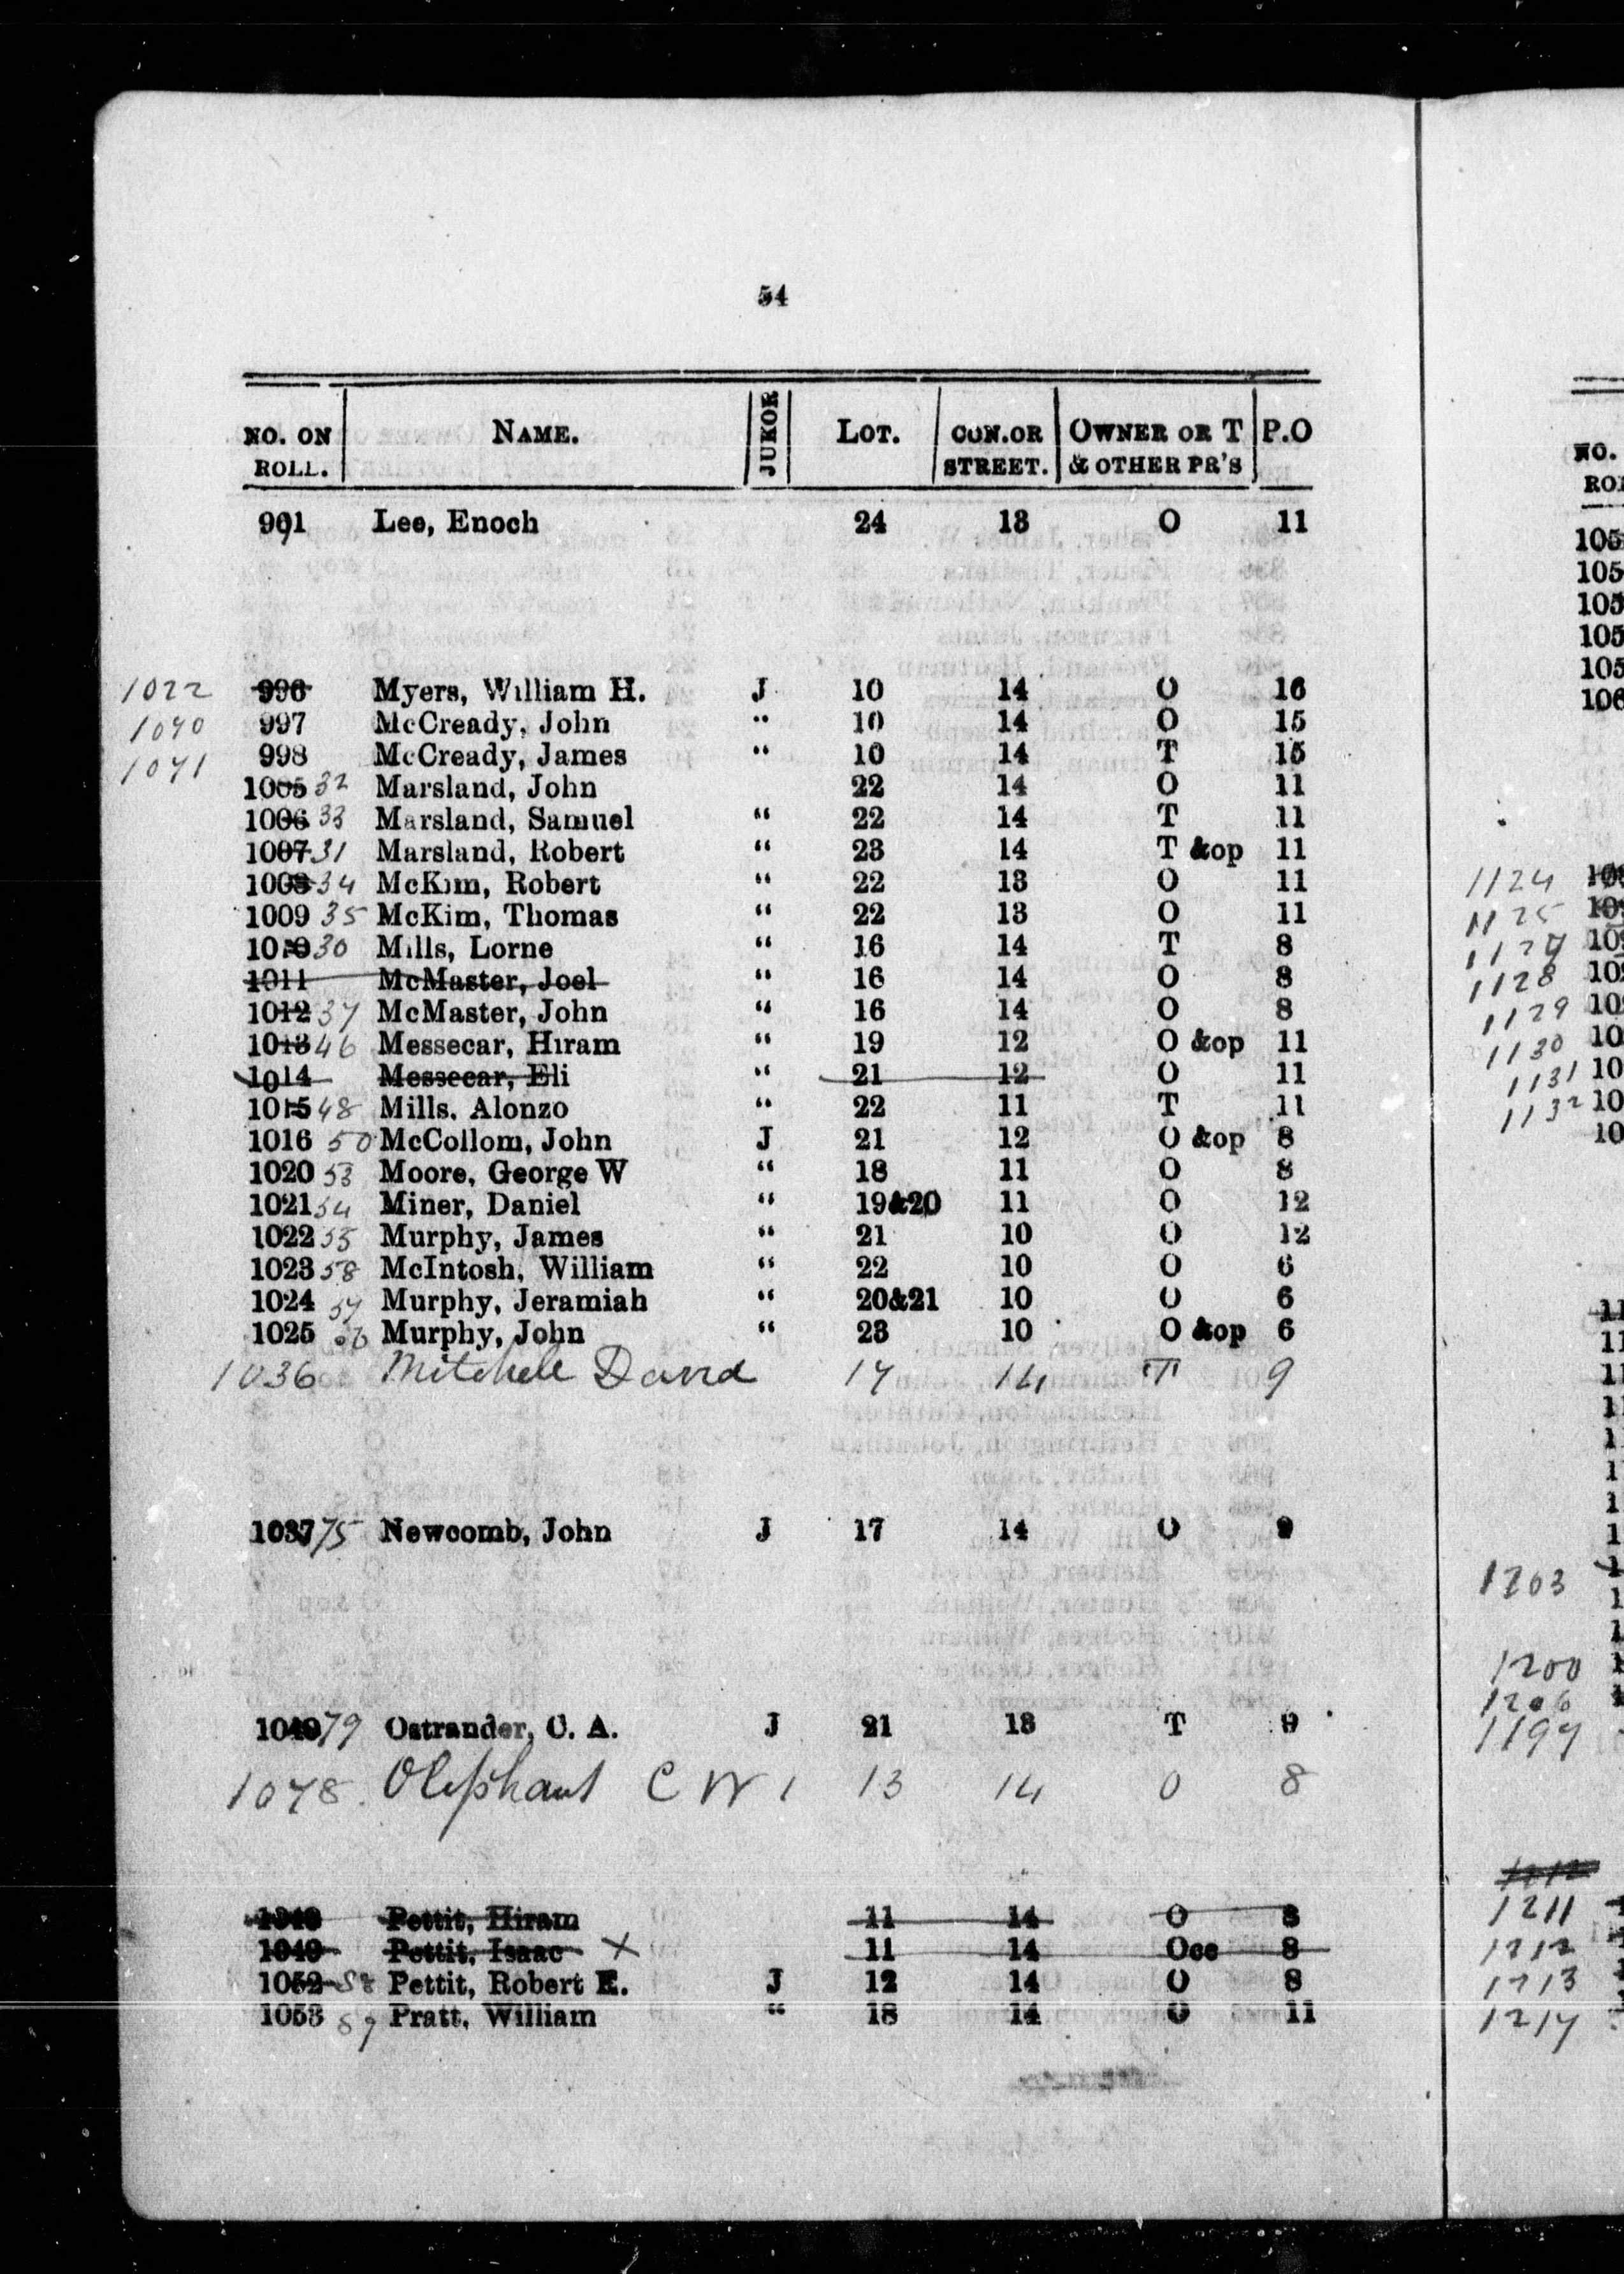 54
NO. ON ROLL. NAME. JUROR LOT. CON. OR STREET. OWNER OR T & OTHER PR'S P.O
991 Lee, Enoch 24 13 O 11
1022 996 Myers, William H. J 10 14 O 16
1040 997 McCready, John " 10 14 O 15
1041 998 McCready, James " 10 14 T 15
1005 32 Marsland, John 22 14 O 11
1006 33 Marsland, Samuel " 22 14 T 11
1007 31 Marsland, Robert " 23 14 T &op 11
1008 34 McKim, Robert " 22 13 O 11
1009 35 McKim, Thomas " 22 13 O 11
1010 30 Mills, Lorne " 16 14 T 8
1011 McMaster, Joel " 16 14 O 8
1012 37 McMaster, John " 16 14 O 8
1013 46 Messecar, Hiram " 19 12 O &op 11
1014 Messecar, Eli " 21 12 O 11
1015 48 Mills. Alonzo " 22 11 T 11
1016 50 McCollom, John J 21 12 O &op 8
1020 53 Moore, George W " 18 11 O 8
1021 54 Miner, Daniel " 19&20 11 O 12
1022 55 Murphy, James " 21 10 O 12
1023 58 McIntosh, William " 22 10 O 6
1024 57 Murphy, Jeramiah " 20&21 10 O 6
1025 Murphy, John " 23 10 O &op 6
1036 Mitchell David 17 14 T 9
1037 75 Newcomb, John J 17 14 O 9
1040 79 Ostrander, C. A. J 21 13 T 9
1078. Oliphant C W 1 13 14 O 8
Pettit, Hiram 11 14 O 8
1049 Pettit, Isaac X 11 14 Occ 8
1052 88 Pettit, Robert E. J 12 14 O 8
1053 89 Pratt, William " 18 14 O 11
NO.
105
105
105
105
105
106
1124
1125
1127
1128
1129
1130
1131
1132
1203
1200
1206
1197
1212
1211
1212
1213
1214